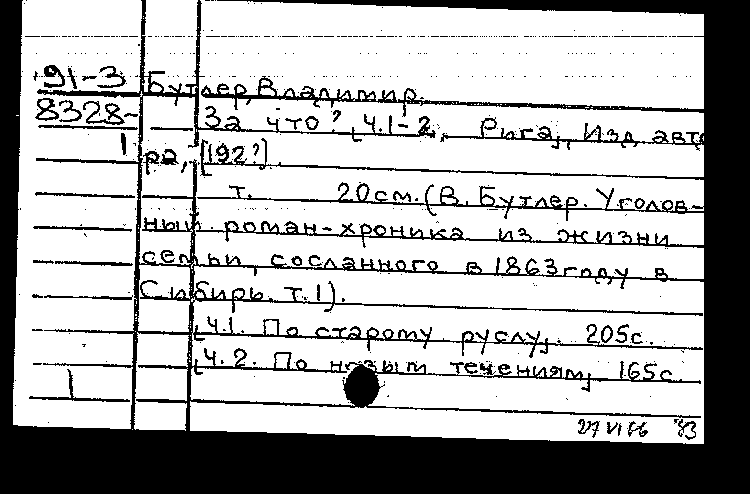 91-3 Бутлер, Владимир.
8328- За что? [Ч.1-2]. Рига, Изд. авто
1 ра, [192?].
т. 20см. (В. Бутлер. Уголов-
ный роман-хроника из жизни
семьи, сосланного в 1863 году в
Сибирь. т.1).
[Ч.1. По старому руслу]. 205с.
[Ч.2. По новым течениям] 165с.
1
93